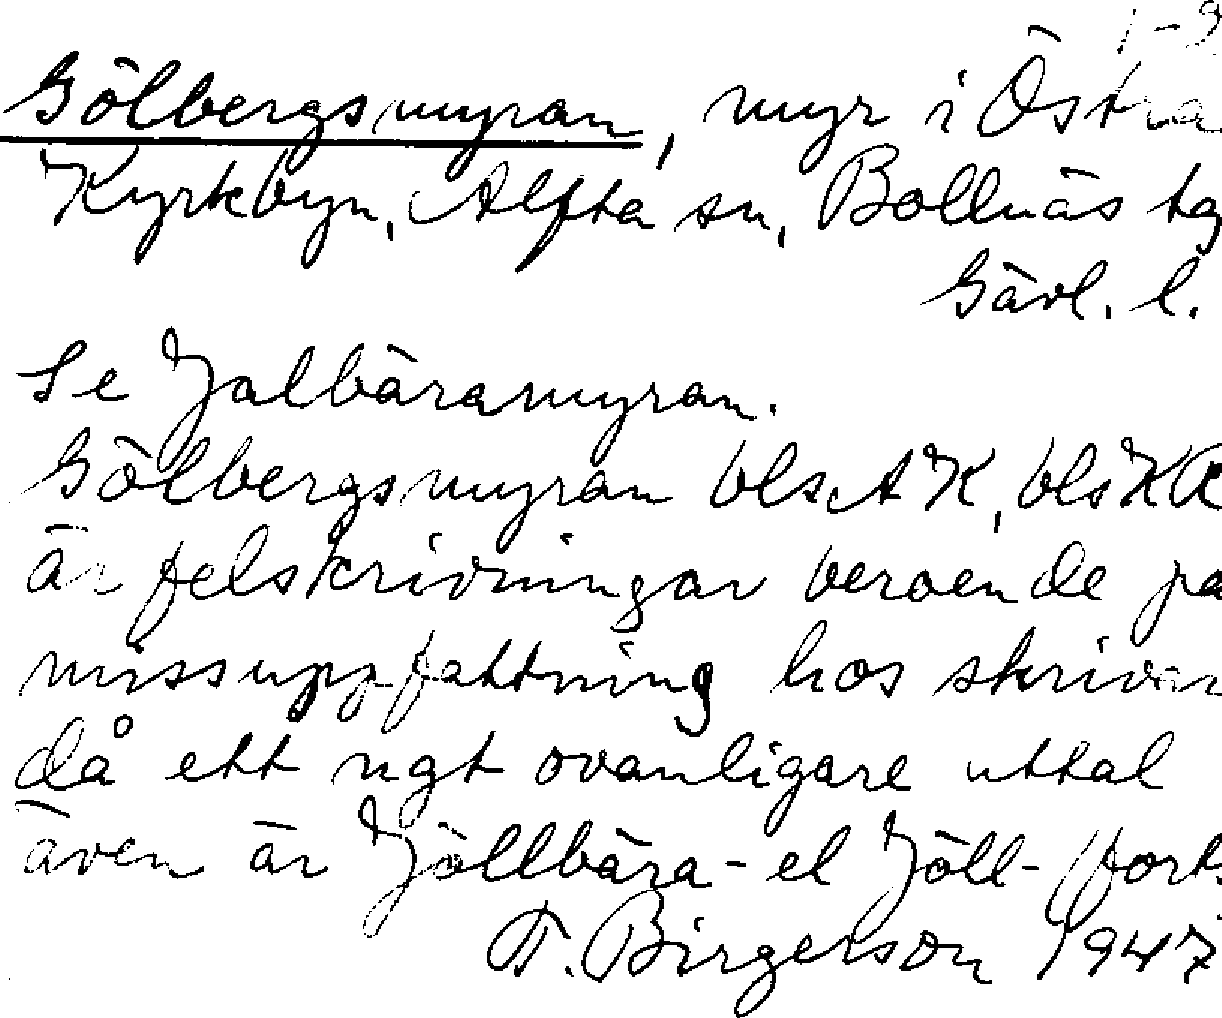 1-9
Gölbergsmyran, myr i Östra
Kyrkbyn, Alfta sn, Bollnäs tg
Gävl. l.
Se Jalbäramyran.
Gölbergsmyran bls AK, bls KR
är felskrivningar beroende på
missuppfattning hos skrivar
då ett ngt ovanligare uttal
även är Jöllbära- el Jöll- (fort.
T. Birgerson 1947